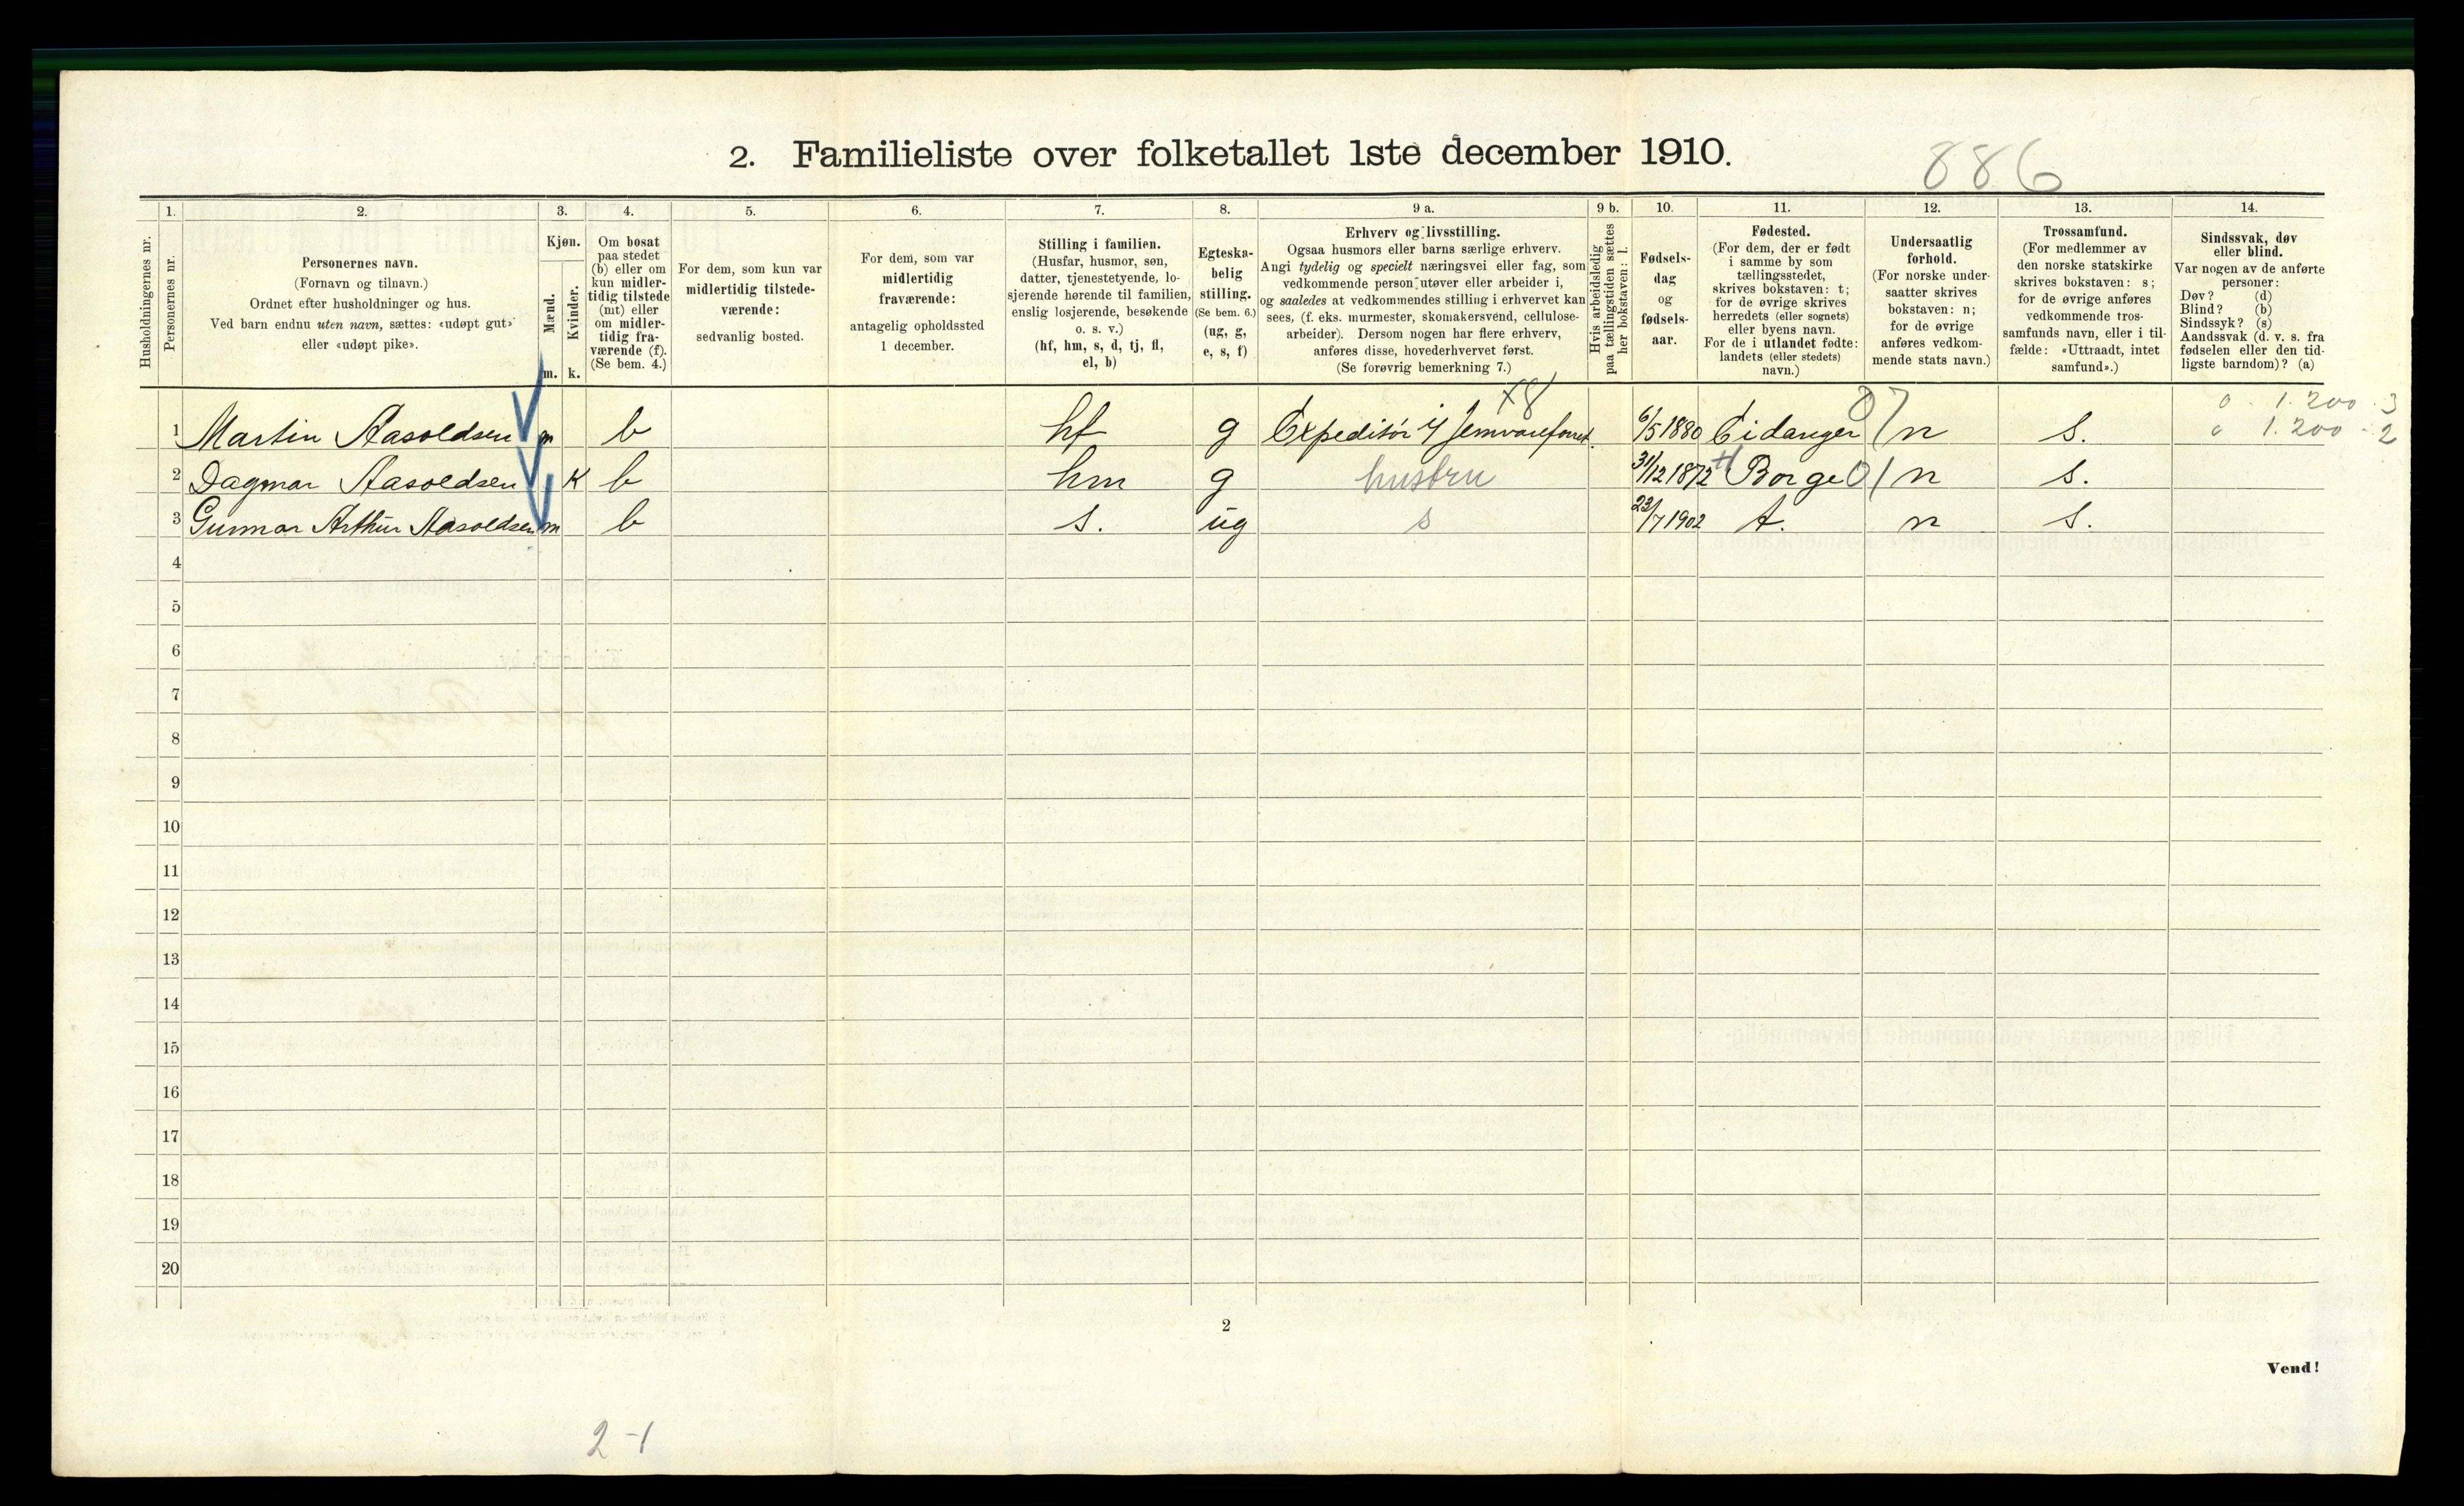 2. Familieliste over folketallet 1ste december 1910.
886
Husholdningernes nr.
1.
Personernes nr.
2.
Personernes navn.
(Fornavn og tilnavn.)
Ordnet efter husholdninger og hus.
Ved barn endnu uten navn, sættes: «udøpt gut»
eller «udøpt pike».
3.
Kjøn.
Mænd.
Kvinder.
m. k.
4.
Om bosat
paa stedet
(b) eller om
kun midler-
tidig tilstede
(mt) eller
om midler-
tidig fra-
værende (f).
(Se bem. 4.)
5.
For dem, som kun var
midlertidig tilstede-
værende:
sedvanlig bosted.
6.
For dem, som var
midlertidig
fraværende:
antagelig opholdssted
1 december.
7.
Stilling i familien.
(Husfar, husmor, søn,
datter, tjenestetyende, lo-
sjerende hørende til familien,
enslig losjerende, besøkende
o. s. v.)
(hf, hm, s, d, tj, fl,
el, b)
8.
Egteska-
belig
stilling.
(Se bem. 6.)
(ug, g,
e, s, f)
9 a.
Erhverv og livsstilling.
Ogsaa husmors eller barns særlige erhverv.
Angi tydelig og specielt næringsvei eller fag, som
vedkommende person utøver eller arbeider i,
og saaledes at vedkommendes stilling i erhvervet kan
sees, (f. eks. murmester, skomakersvend, cellulose-
arbeider). Dersom nogen har flere erhverv,
anføres disse, hovederhvervet først.
(Se forøvrig bemerkning 7.)
9 b.
Hvis arbeidsledig
paa tællingstiden sættes
her bokstaven: l.
10.
Fødsels-
dag
og
fødsels-
aar.
11.
Fødested.
(For dem, der er født
i samme by som
tællingsstedet,
skrives bokstaven: t;
for de øvrige skrives
herredets (eller sognets)
eller byens navn.
For de i utlandet fødte:
landets (eller stedets)
navn.)
12.
Undersaatlig
forhold.
(For norske under-
saatter skrives
bokstaven: n;
for de øvrige
anføres vedkom-
mende stats navn.)
13.
Trossamfund.
(For medlemmer av
den norske statskirke
skrives bokstaven: s;
for de øvrige anføres
vedkommende tros-
samfunds navn, eller i til-
fælde: «Uttraadt, intet
samfund».)
14.
Sindssvak, døv
eller blind.
Var nogen av de anførte
personer:
Døv? (d)
Blind? (b)
Sindssyk? (s)
Aandssvak (d. v. s. fra
fødselen eller den tid-
ligste barndom)? (a)
1 Martin Aasoldsen m b hf g Expeditør i Jernvareforret. 6/5 1880 Eidanger 87 n s. 0 1.200 3
0 1.200 - 2
2 Dagmar Aasoldsen K b hm g hustru 31/12 1872 Borge 01 n s.
3 Gunnar Arthur Aasoldsen m b s. ug s 23/7 1902 t. n s.
4
5
6
7
8
9
10
11
12
13
14
15
16
17
18
19
20
2
Vend!
2-1